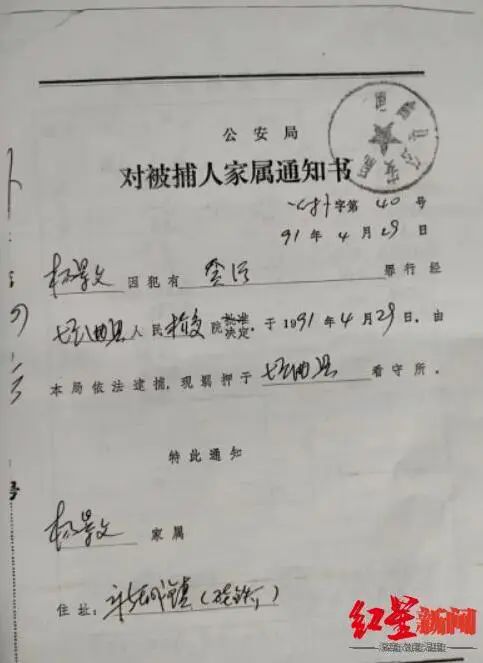 公安局
对被捕人家属通知书
字第 40 号
91 年 4 月 29 日
杨景文 因犯有 贪污 罪行经
垣曲县人民检察院批准决定，于1991年4月29日，由
本局依法逮捕，现羁押于垣曲县看守所。
特此通知
杨景文 家属
住址：
红星新闻